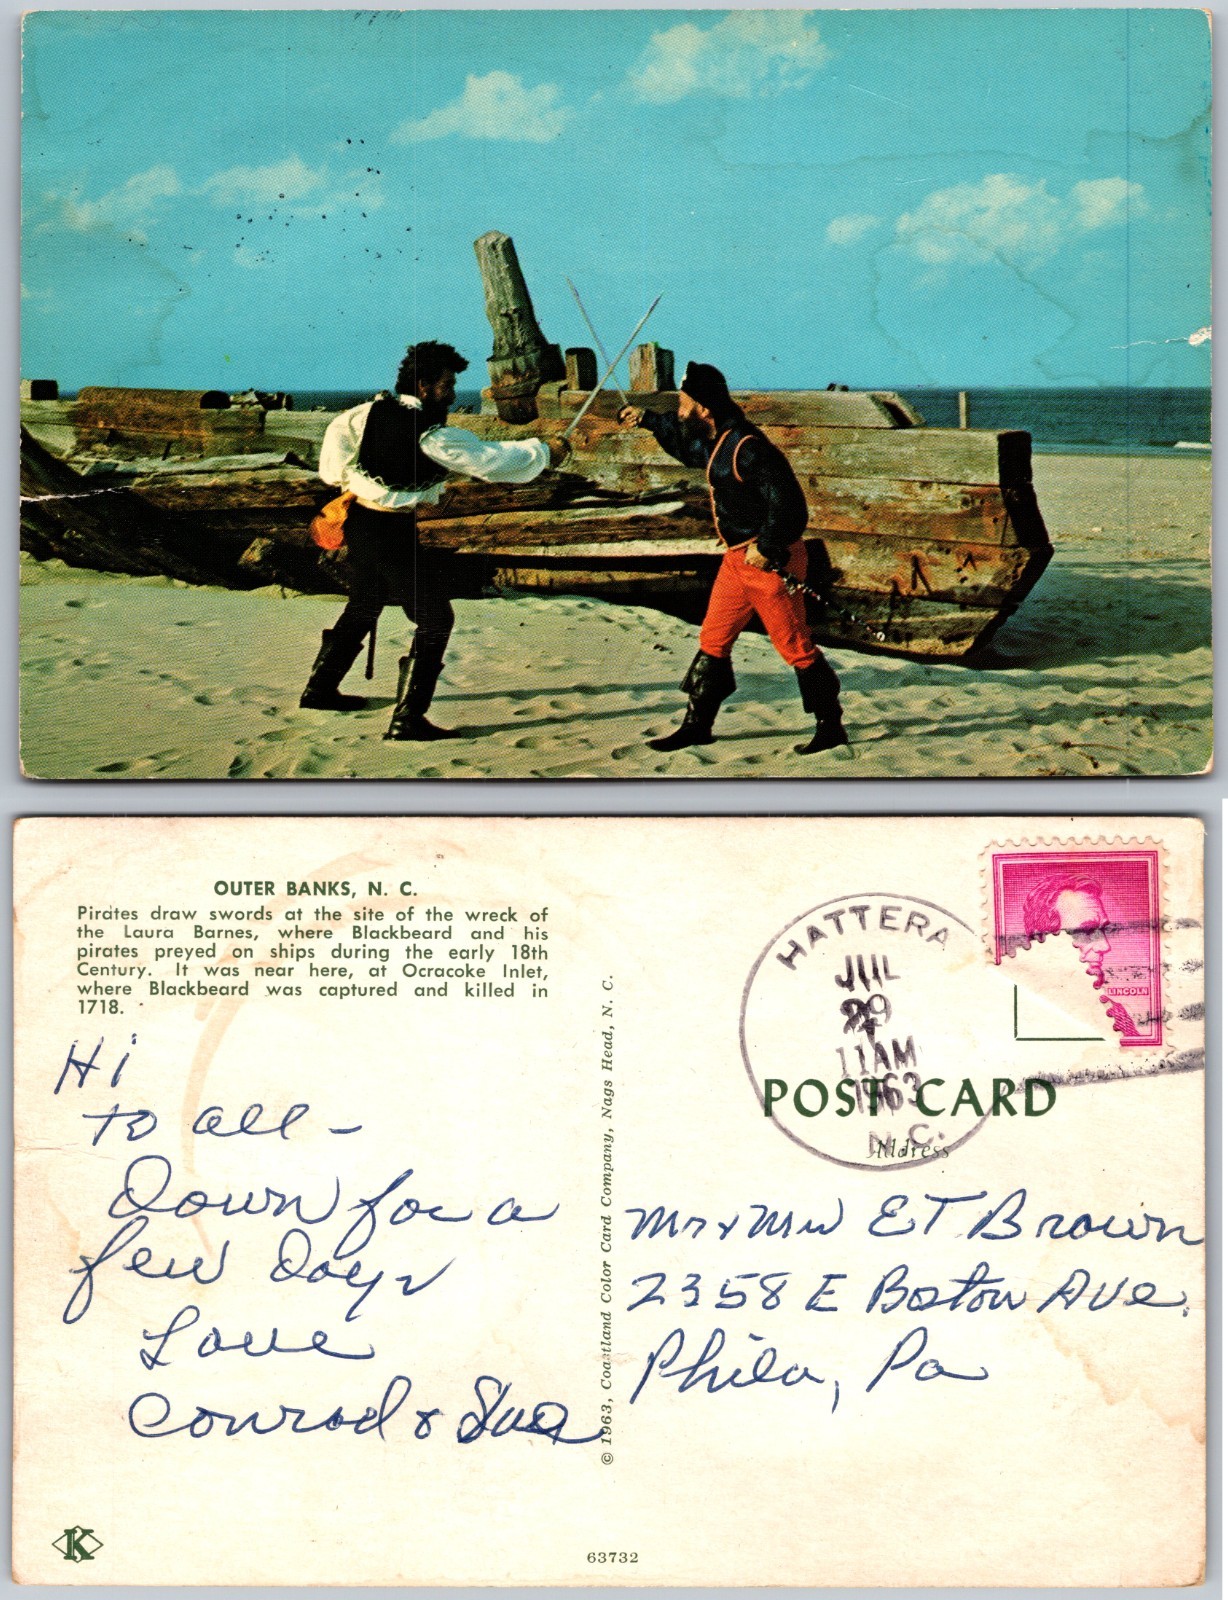 OUTER BANKS, N. C.
Pirates draw swords at the site of the wreck of
the Laura Barnes, where Blackbeard and his
pirates preyed on ships during the early 18th
Century. It was near here, at Ocracoke Inlet,
where Blackbeard was captured and killed in
1718.
Hi
to all –
Down for a
few Days
Love
Conrad &
K
© 1963, Coastland Color Card Company, Nags Head, N. C.
63732
HATTERA
JUL
29
11AM
1963
N.C.
LINCOLN
POST CARD
Address
Mr & Mrs E T Brown
2358 E Boston Ave.
Phila, Pa